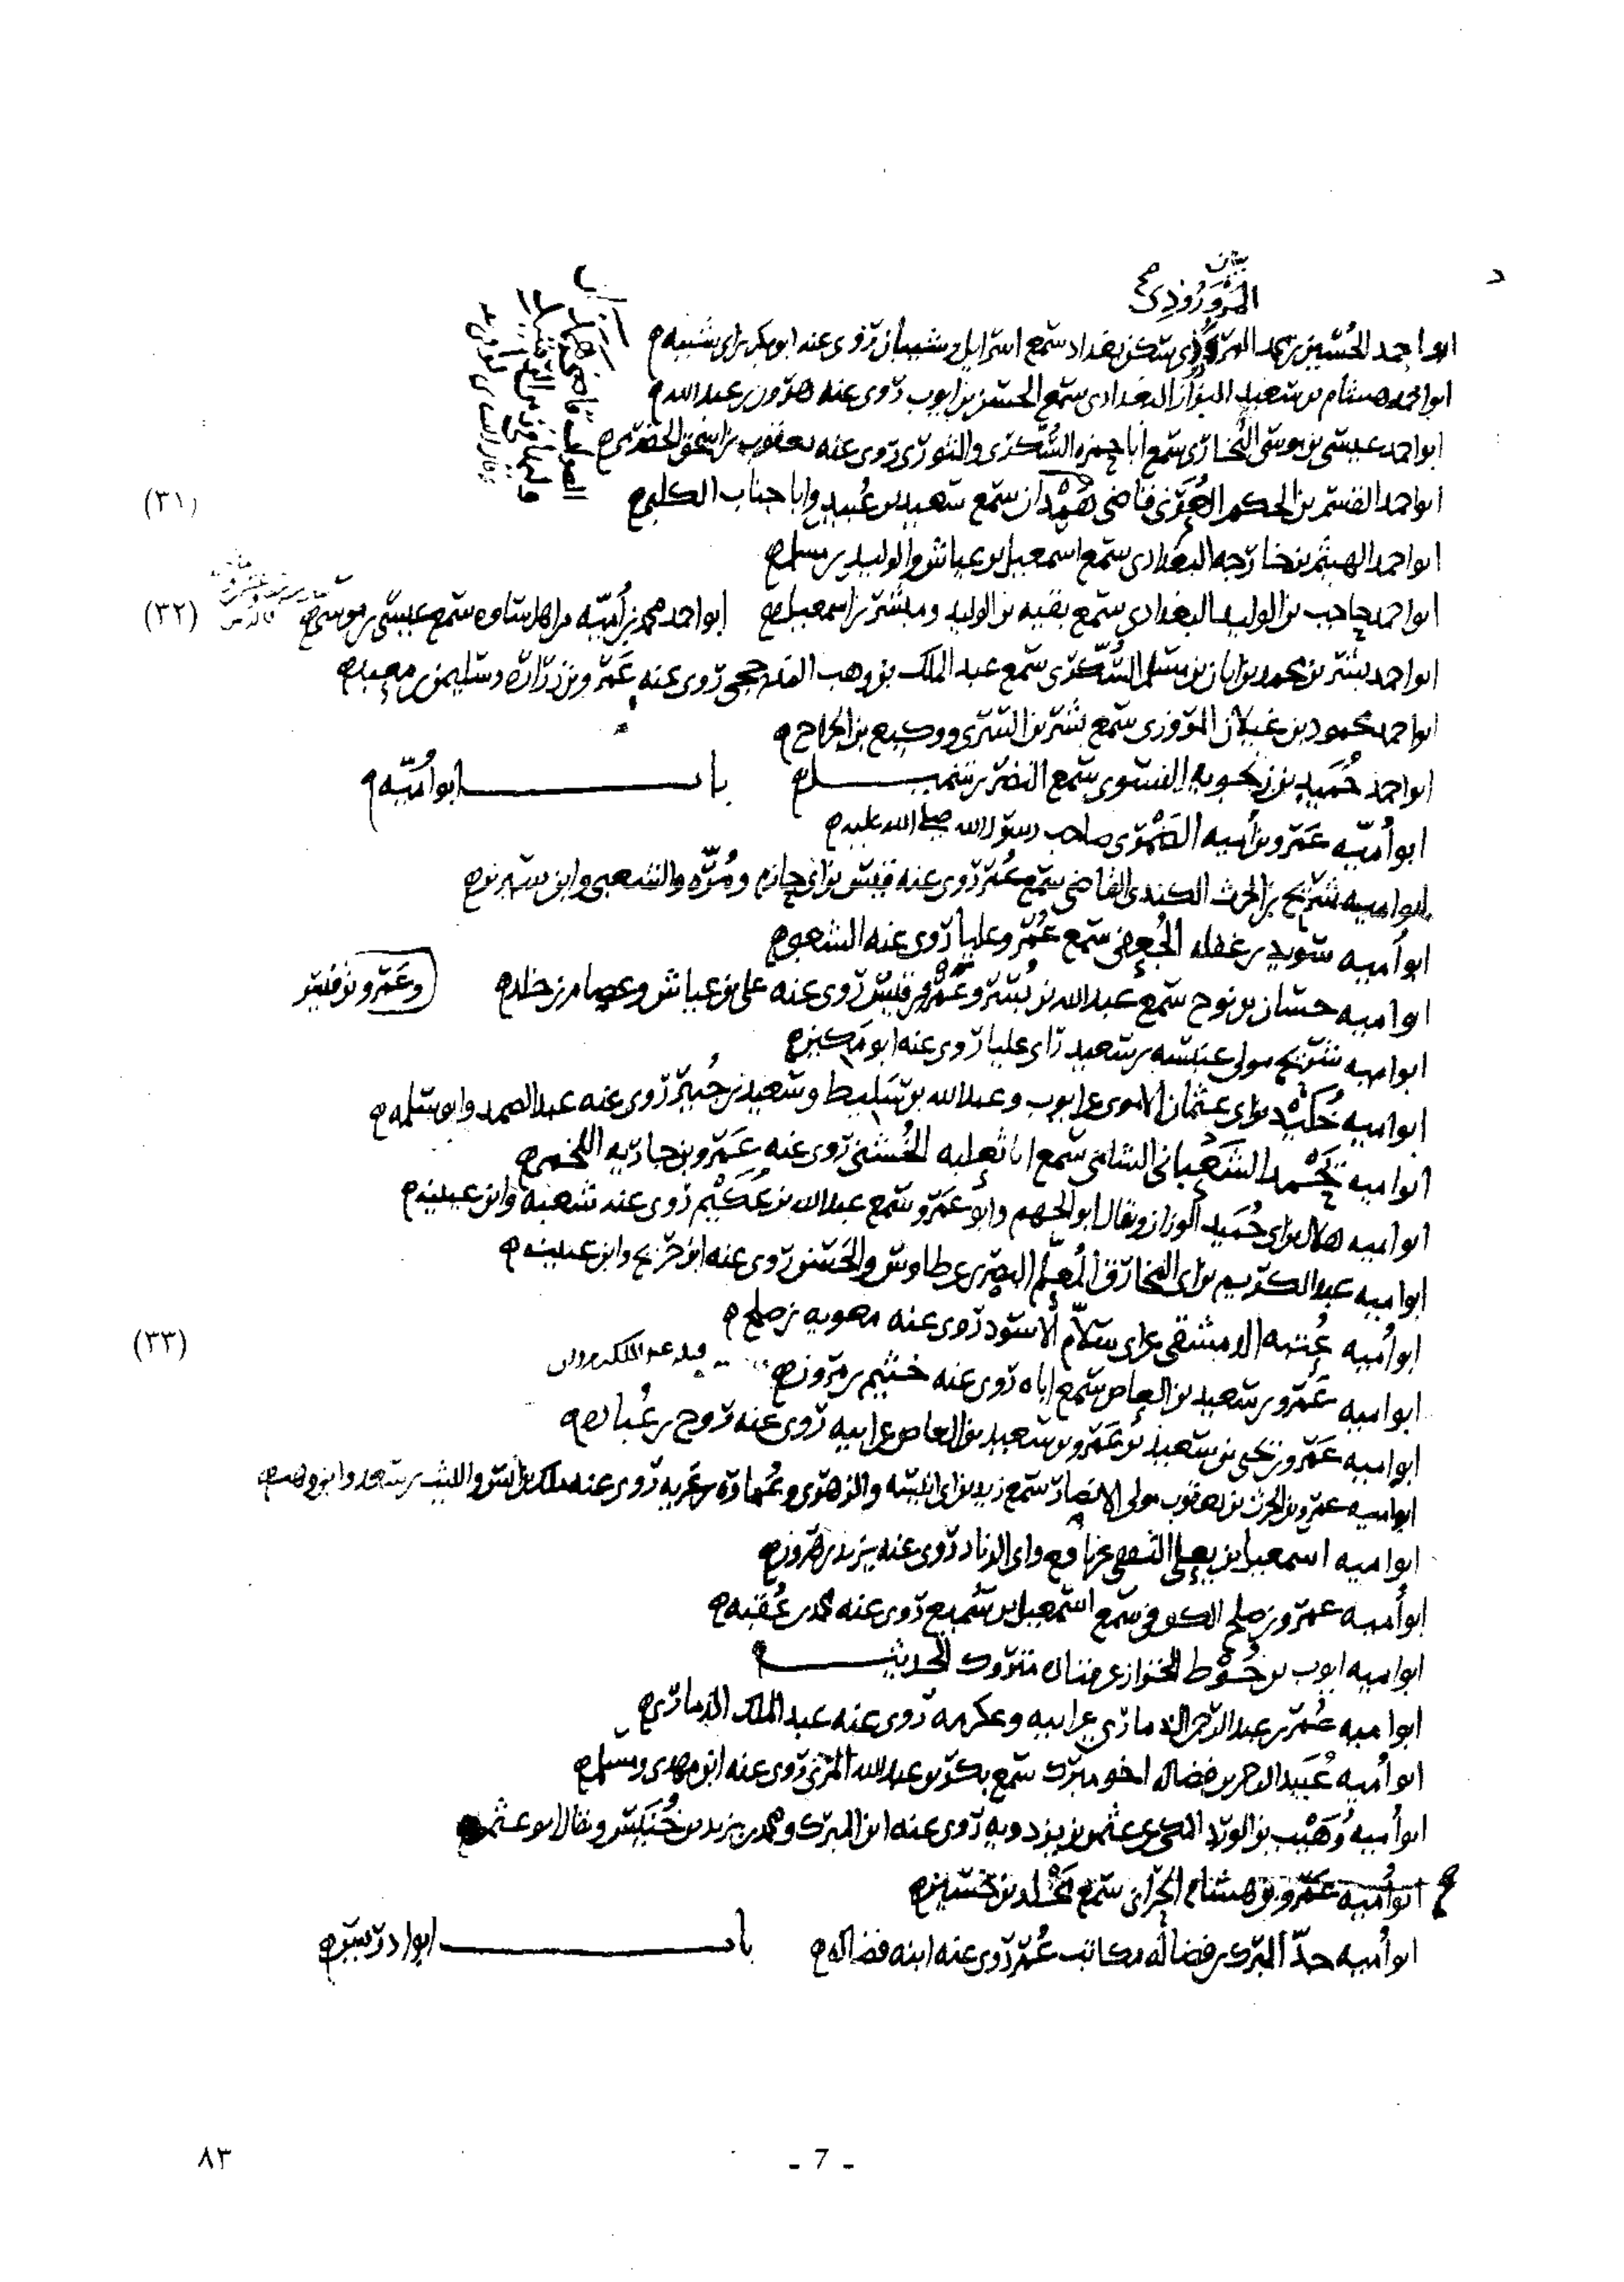 بيان
المروروذي
ابو احمد الحسين بن محمد المروذي سكن بغداد سمع اسرايل وشيبان روى عنه ابو بكر بن ابي شيبه
ابو احمد هشام بن سعيد البزاز البغدادي سمع الحسن بن ايوب روى عنه هرون بن عبد الله
ابو احمد عيسى بن موسى البخاري سمع أبا حمزه السكري والثوري روى عنه يعقوب بن اسحق الحضرمي
ابو احمد القسم بن الحكم العرني قاضي همدان سمع سعيد بن عبيد وابا جناب الكلبي
(٣١)
ابو احمد الهيثم بن خارجه البغدادي سمع اسمعيل بن عياش والوليد بن مسلم
ابو احمد حاجب بن الوليد البغدادي سمع بقيه بن الوليد ومبشر بن اسمعيل ابو احمد محمد بن أميّه من اهل ساوه سمع عيسى بن موسى
(٣٢)
ابو احمد بشر بن محمد بن ابان بن مسلم السكري سمع عبد الملك بن وهب المذحجي روى عنه عمرو بن زراره وسليمن بن معبد
ابو احمد محمود بن غيلان المروزي سمع بشر بن السري ووكيع بن الجراح
ابو احمد حميد بن زنجويه النسوي سمع النضر بن شميل باب ابو أميّه
ابو أميّه عمرو بن أميه الضمري صاحب رسول الله صلى الله عليه
ابو اميه شريح بن الحرث الكندي القاضي سمع عمر روى عنه قيس بن ابي حازم ومُرّه والشعبي وابن سيرين
ابو أميه سويد بن غفله الجُعفي سمع عُمر وعليا روى عنه الشعبي
ابو اميه حسان بن نوح سمع عبد الله بن بُسر وعمرو بن قيس روى عنه علي بن عياش وعصام بن خلد وعمرو بن قيس
ابو اميه شريح مولى عنبسه بن سعيد راى عليا روى عنه ابو مكين
ابو اميه خُليد بن ابي عثمان الاموي عن ايوب وعبد الله بن سليط وسعيد بن جُبير روى عنه عبد الصمد وابو سلمه
ابو اميه يُحمد الشعباني الشامي سمع ابا ثعلبه الخُشني روى عنه عمرو بن جاريه اللخمي
ابو اميه هلال بن ابي حُميد الوزان ويقال ابو الجهم وابو عمرو سمع عبد الله بن عُكيم روى عنه شعبه وابن عيينه
ابو اميه عبد الكريم بن ابي المخارق المعلم البصري عن طاوس والحسن روى عنه ابن جريج وابن عيينه
ابو أميه عُتبه الدمشقي عن ابي سلّام الأسود روى عنه معويه بن صلح
(٣٣)
ابو اميه عمرو بن سعيد بن العاص سمع اباه روى عنه خثيم بن مروان قتله عبد الملك بن مروان
ابو اميه عمرو بن يحيى بن سعيد بن عمرو بن سعيد بن العاص عن ابيه روى عنه روح بن عُباده
ابو اميه عمرو بن الحرث بن يعقوب مولى الانصار سمع زيد بن ابي انيسه والزهري وعُماره بن غزيه روى عنه ملك بن انس والليث بن سعد وابن وهب
ابو اميه اسمعيل بن يعلى الثقفي عن نافع وابي الزناد روى عنه يزيد بن هرون
ابو أميه عمرو بن صلح الكوفي سمع اسمعيل بن سُميع روى عنه محمد بن عُقبه
ابو اميه ايوب بن خُوط الخزاز عن قتاده متروك الحديث
ابو اميه عُمر بن عبد الرحمن الذماري عن ابيه وعكرمه روى عنه عبد الملك الذماري
ابو أميه عُبيد الرحمن بن فضاله اخو مبرك سمع بكر بن عبد الله المزني روى عنه ابن مهدي ومسلم
ابو أميه وُهيب بن الورد المكي عن عثمن بن يزدويه روى عنه ابن المبرك ومحمد بن يزيد بن خُنيس ويقال ابو عثمن
ابو أميه عمرو بن هشام الحراني سمع مَخْلد بن حسين
ابو أميه جدّ المبرك بن فضاله مكاتب عُمر روى عنه ابنه فضاله باب ابو ادريس
- 7 -
٨٣